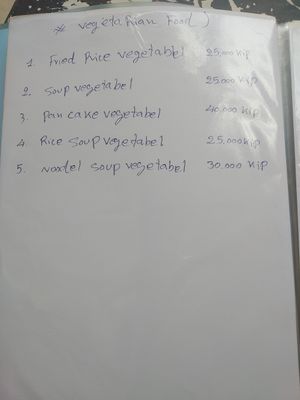 * Vegetarian Food
1. Fried Rice vegetabel 25,000 Kip
2. Soup vegetabel 25.000 Kip
3. Pan cake vegetabel 40.000 Kip
4. Rice Soup vegetabel 25.000 Kip
5. Noodel Soup vegetabel 30.000 Kip